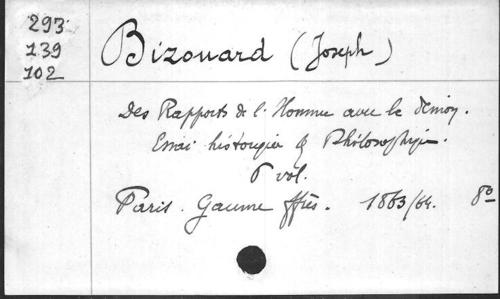 293.
139
102
Bizouard (Joseph)
Des Rapports de l'Homme avec le démon.
Essai historique & Philosophique.
6 vol.
Paris. Gaume ffres. 1863/64. 8º